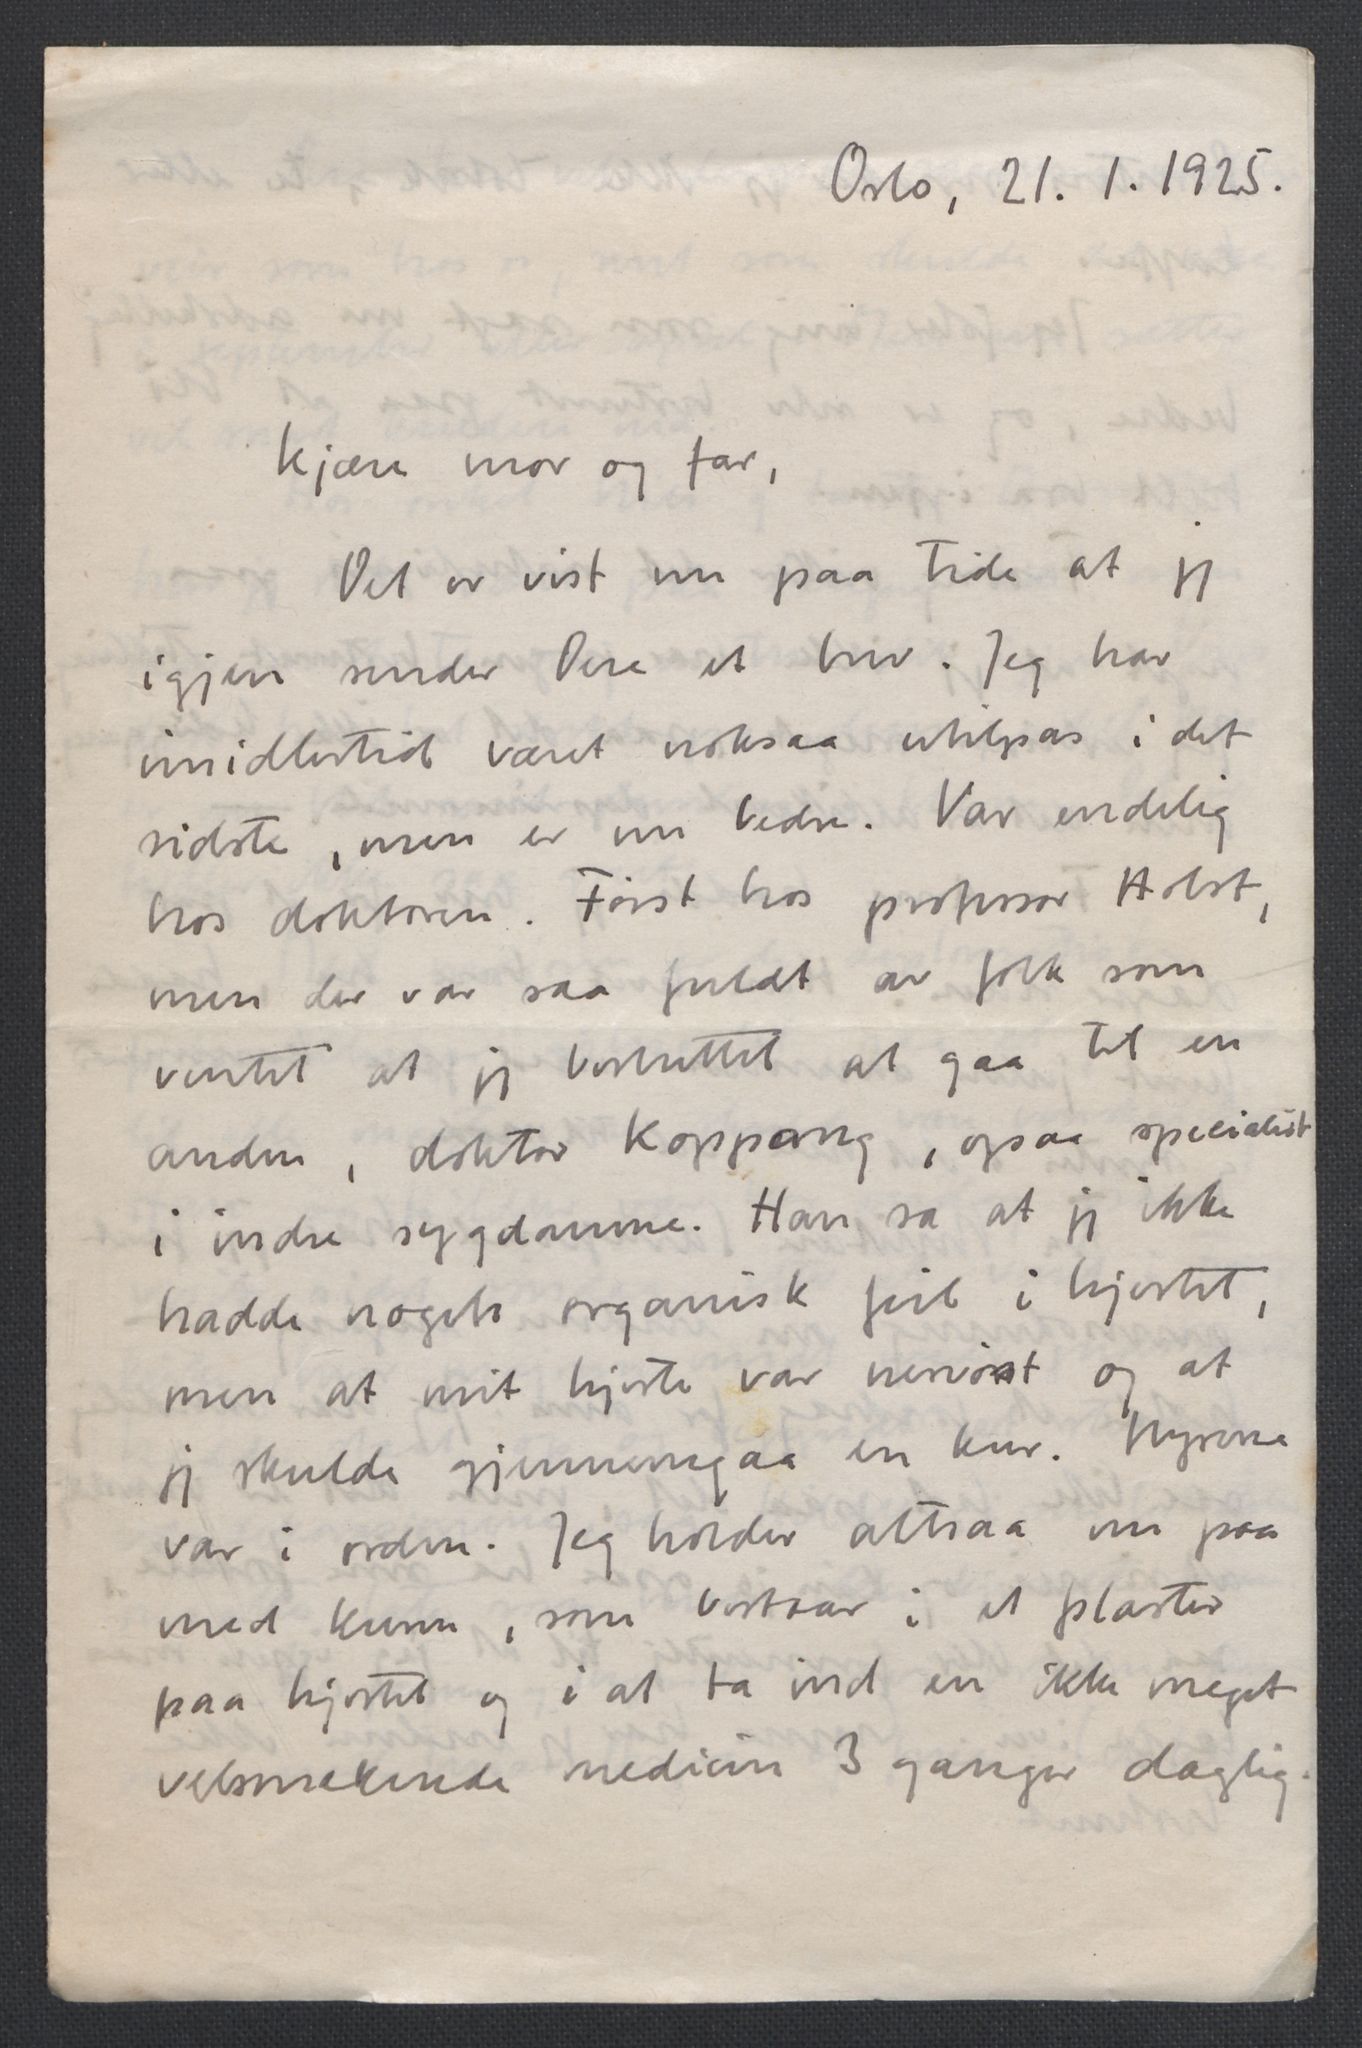 Oslo, 21. 1. 1925.
Kjære mor og far,
Det er vist nu paa tide at jeg
igjen sender Dere et brev. Jeg har
imidlertid været noksaa utilpas i det
sidste, men er nu bedre. Var endelig
hos doktoren. Först hos professor Holst,
men der var saa fuldt av folk som
ventet at jeg besluttet at gaa til en
anden, doktor Koppang, ogsaa specialist
i indre sygdomme. Han sa at jeg ikke
hadde nogen organisk feil i hjertet,
men at mit hjerte var nervöst og at
jeg skulde gjennemgaa en kur. Nyrene
var i orden. Jeg holder altsaa nu paa
med kuren, som bestaar i et plaster
paa hjertet og i at ta ind en ikke meget
velsmakende medicin 3 ganger daglig.